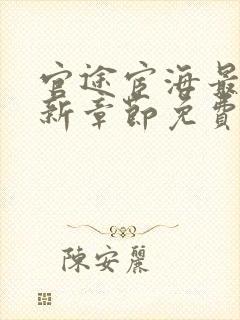 官途宦海最
新章節免費
陳安麗